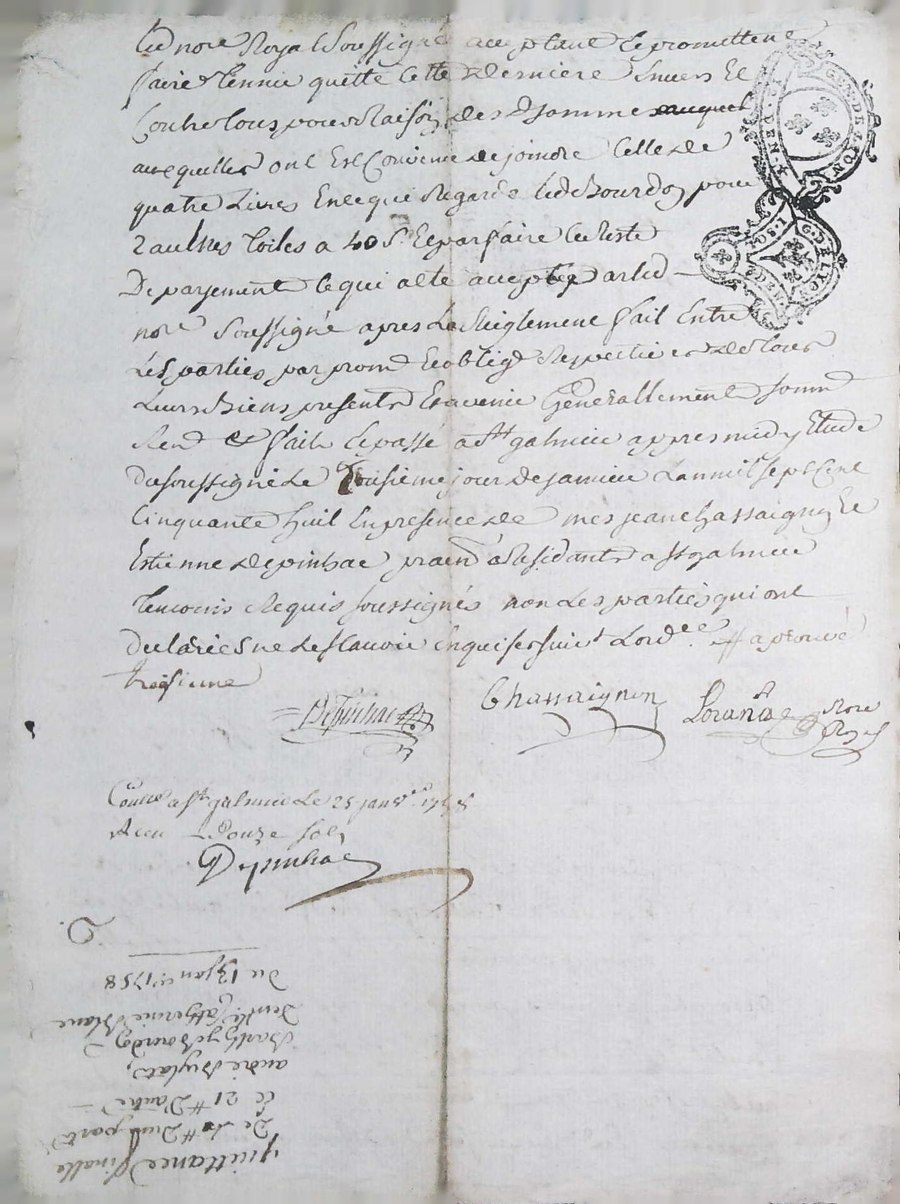 led nore Royal Soussigné acceptant et promettene
faire tennir quitte cette derniere Envers Et
Contre tous pour Raison des d. somme
auxquelles ont Est Convenu de joindre Celle de
quatre Livres En ce qui Regarde led Bourdon pour
2 autres toiles a 40 s. Et parfaire le Reste
De payement Ce qui a été accepté par led
nore Soussigné apres Le Reiglement fait Entre
Les parties par prom Et oblig Respectives de tous
Leurs Biens presents Et avenir Generallement
Ren & fait Et passé a St galmier apres midy Etude
du soussigné Le jour de janvier L'an mil sept Cent
Cinquante huit En presence de mes jean Chassaigny Et
Estienne depinhac Residants a St galmier
temoins Requis soussignés non Les parties qui ont
declarées ne le scavoir Enquis et suivt Lordce # aprouvé
troisieme
Depinhac
Chassaignon
Nore
Royal
Conlle a St galmier Le 25 janer 1758
Recu Douze sols
Depinhac
D.
quittance finalle
De # D'un part
Et 21 # D'autre
andré
Barthy Bourdon
Demlle Catherine Blanc
Du 13 janer 1758
GEN. DE LYON
G. DE LYON